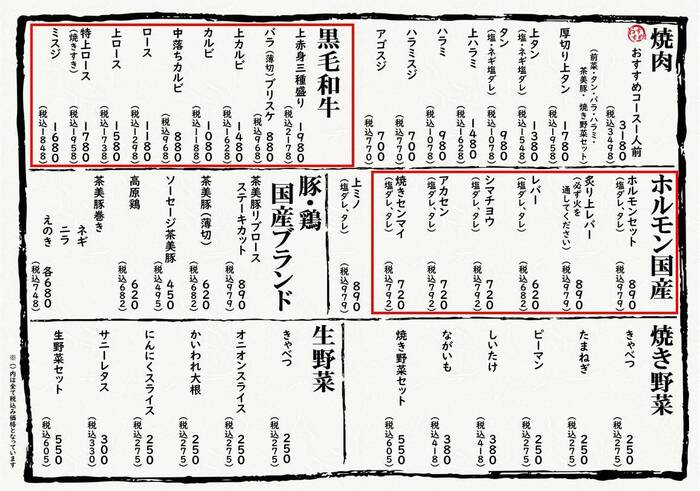 焼肉
おすすめ
おすすめコース一人前
3180
(税込3498)
(前菜・タン・バラ・ハラミ・
茶美豚・焼き野菜セット)
厚切り上タン
1780
(税込1958)
上タン
(塩・ネギ塩ダレ)
1380
(税込1518)
タン
(塩・ネギ塩ダレ)
980
(税込1078)
上ハラミ
1480
(税込1628)
ハラミ
980
(税込1078)
ハラミスジ
700
(税込770)
アゴスジ
700
(税込770)
黒毛和牛
上赤身三種盛り
1980
(税込2178)
バラ(薄切)ブリスケ
880
(税込968)
上カルビ
1480
(税込1628)
カルビ
1080
(税込1188)
中落ちカルビ
880
(税込968)
ロース
1180
(税込1298)
上ロース
1580
(税込1738)
特上ロース
(焼きすき)
1780
(税込1958)
ミスジ
1680
(税込1848)
ホルモン国産
ホルモンセット
(塩ダレ、タレ)
890
(税込979)
炙り上レバー
(必ず火を
通してください)
890
(税込979)
レバー
(塩ダレ、タレ)
620
(税込682)
シマチョウ
(塩ダレ、タレ)
720
(税込792)
アカセン
(塩ダレ、タレ)
720
(税込792)
焼きセンマイ
(塩ダレ、タレ)
720
(税込792)
上ミノ
(塩ダレ、タレ)
890
(税込979)
豚・鶏
国産ブランド
茶美豚リブロース
ステーキカット
890
(税込979)
茶美豚(薄切)
620
(税込682)
ソーセージ茶美豚
450
(税込495)
高原鶏
620
(税込682)
茶美豚巻き
ネギ
ニラ
えのき
各680
(税込748)
焼き野菜
きゃべつ
250
(税込275)
たまねぎ
250
(税込275)
ピーマン
250
(税込275)
しいたけ
380
(税込418)
ながいも
380
(税込418)
焼き野菜セット
550
(税込605)
生野菜
きゃべつ
250
(税込275)
オニオンスライス
250
(税込275)
かいわれ大根
250
(税込275)
にんにくスライス
250
(税込275)
サニーレタス
300
(税込330)
生野菜セット
550
(税込605)
※()内は全て税込み価格となっています